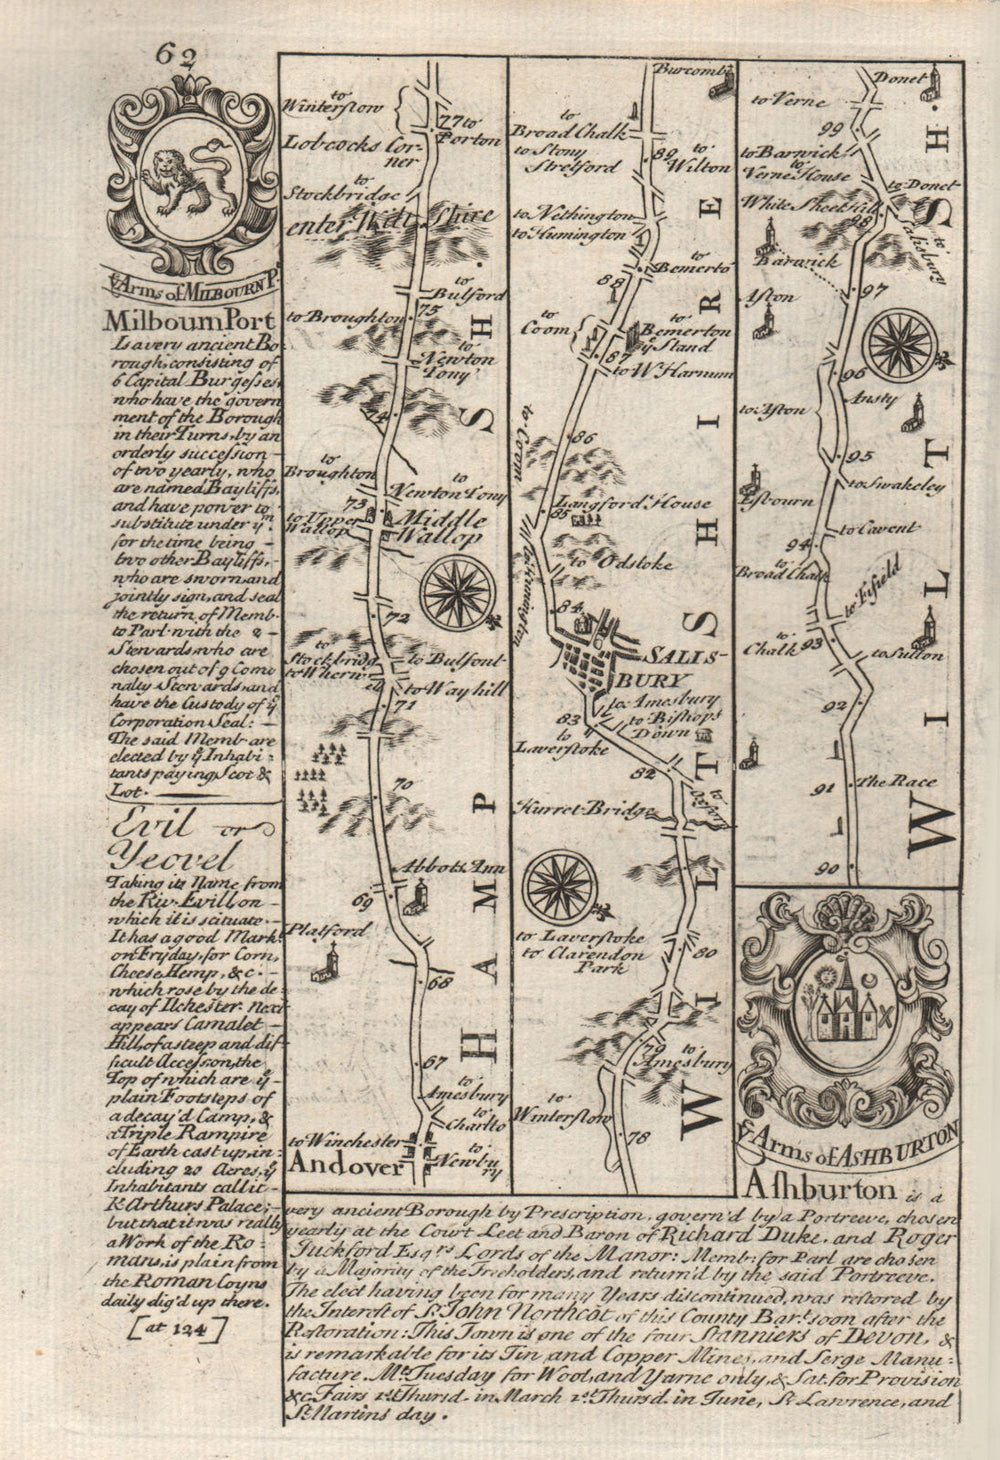 62
Arms of MILBOURN P.
Milbourn Port
Is a very ancient Bo
rough, consisting of
6 Capital Burgesses
who have the govern
ment of the Borough
in their Turns, by an
orderly succession
of two yearly, who
are named Bayliffs,
and have power to
substitute under yᵐ
for the time being
two other Bayliffs,
who are sworn, and
jointly sign, and seal
the return of Memb.
to Parl. with the 2
Stewards, who are
chosen out of 9 Como
nalty Stewards, and
have the Custody of yᵉ
Corporation Seal:
The said Memb. are
elected by yᵉ Inhabi-
tants paying Scot &
Lot.
Evil or
Yeovel
Taking its Name from
the Riv. Evill on
which it is scituate.
It has a good Markᵗ
on Fryday, for Corn,
Cheese, Hemp, &c.
which rose by the de-
cay of Ilchester. Next
appears Camalet
Hill, of a steep and dif-
ficult Access, on the
Top of which are yᵉ
plain Footsteps of
a decay'd Camp, &
a Triple Rampire
of Earth cast up, in:
cluding 20 Acres, yᵉ
Inhabitants call it
K. Arthurs Palace;
but that it was really
a Work of the Ro=
mans, is plain from
the Roman Coyns
daily dig'd up there.
[at 124]
to Winterslow
77 to Porton
Lobcocks Cor-
ner
to Stockbridge
enter Wiltshire
to Bulford
75
to Broughton
to Newton Tony
74
to Broughton
to Newton Tony
73
to Upper Wallop
Middle
Wallop
72
to Stockbridg
to Bulfout
to Wherw
to Way hill
71
70
Abbots Ann
69
Platford
68
67
to Amesbury
to Charlto
to Winchester
Andover
to Newbury
HAMPSH.
Burcomb
to Broad Chalk
to Stony
Stretford
89
to Wilton
to Nethington
to Humington
to Bemerto
88
to Coom
Bemerton
yᵉ Stand
87
to Wᵗ Harnum
to Coom
86
Langford House
85
to Odstoke
to Hominington
84
SALIS-
BURY
to Amesbury
to Bishops
Down
83
to Laverstoke
82
to Oxford
Hurret Bridge
to Laverstoke
to Clarendon
Park
80
79
to Amesbury
to Winterslow
78
WILTSHIRE
Donet
to Verne
99
to Barwick
to Verne House
to Donet
White Sheet Hill
98
to Salisbury
Barwick
97
Aston
96
Ansty
to Aston
95
to Swakeley
Esbourn
to Cavent
94
to Broad Chalk
to Fifield
to Chalk
93
to Sutton
92
The Race
91
90
WILTSH.
yᵉ Arms of ASHBURTON
Ashburton is a
very ancient Borough by Prescription, govern'd by a Portreeve, chosen
yearly at the Court Leet and Baron of Richard Duke, and Roger
Tuckford Esqʳˢ Lords of the Manor: Memb: for Parl are chosen
by a Majority of the Freeholders, and return'd by the said Portreeve.
The elect having been for many Years discontinued, was restored by
the Interest of Sʳ John Northcot of this County Barᵗ soon after the
Restoration: This Town is one of the four Stanniers of Devon, &
is remarkable for its Tin, and Copper Mines, and Serge Manu=
facture. Mᵗ Tuesday for Wool, and Yarne only, & Sat. for Provision
&c. Fairs 1ˢᵗ Thursd. in March 1ˢᵗ Thursd. in June, Sᵗ Lawrence, and
Sᵗ Martins day.